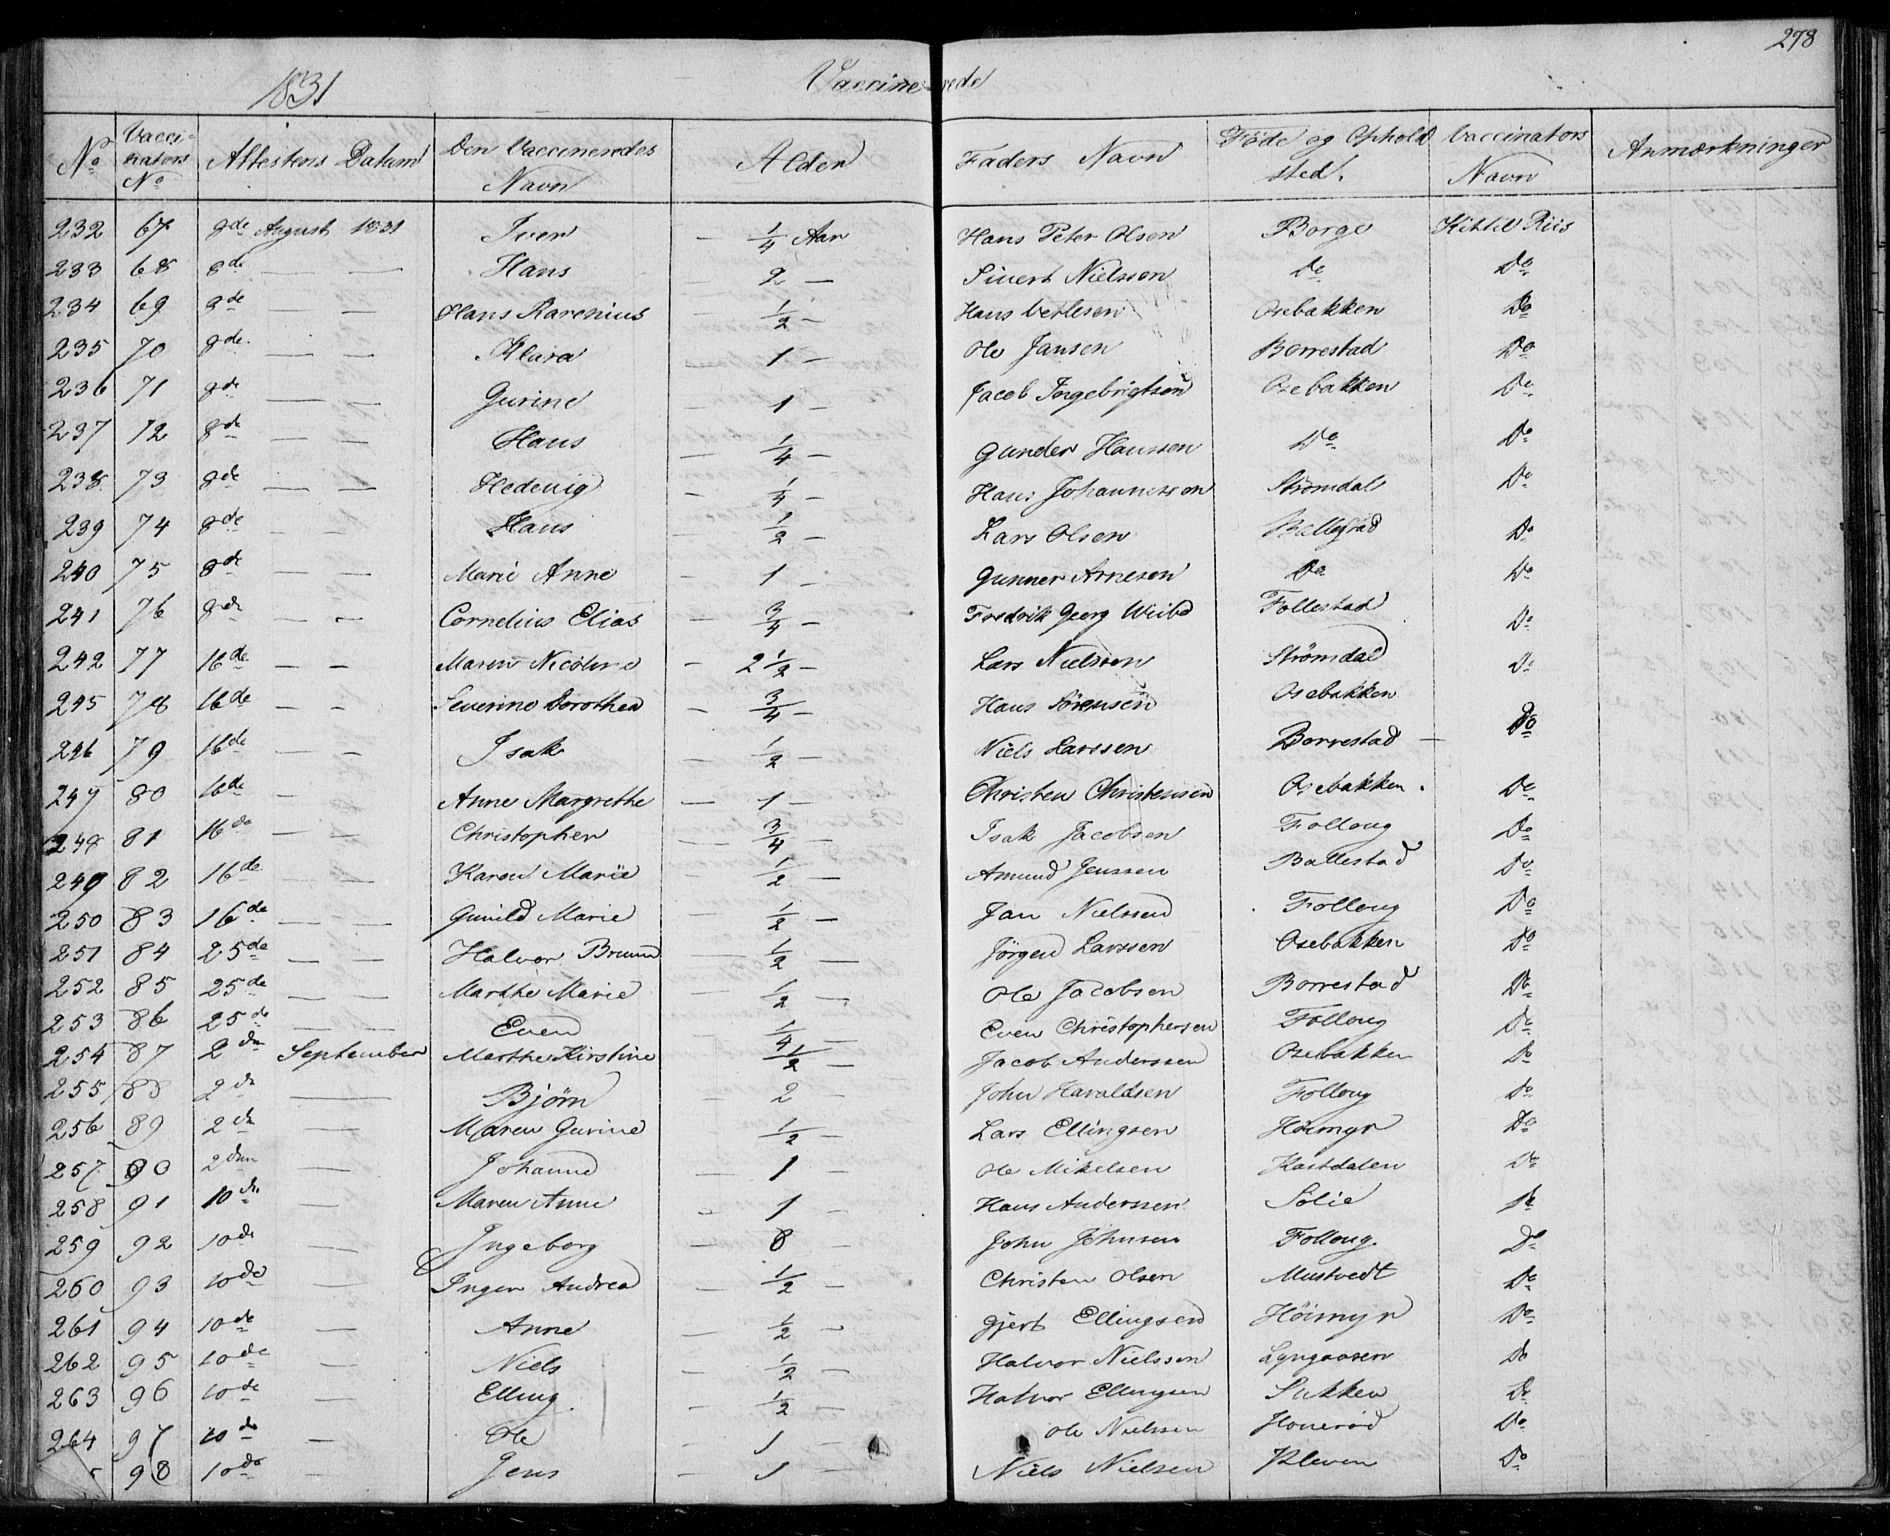 278
1831 Vaccinerede
No Vaccinators No Attestens Datum Den Vaccineredes Navn Alder Faders Navn Føde og Ophold sted. Vaccinators Navn Anmærkninger
232 67 8de August 1831 Iver — 1/4 Aar Hans Peter Olsen Borge Kittil Riis
233 68 8de — — Hans — 2 — Sivert Nielssen Do Do
234 69 8de — — Hans Rarenius — 1/2 — Hans Detlesen Osebakken Do
235 70 8de — — Klara 1 — Ole Jansen Borrestad Do
236 71 8de — — Gurine 1 — Jacob Ingebrigtsen Osebakken Do
237 72 8de — — Hans — 1/4 — Gunder Hanssen Do Do
238 73 8de — — Hedevig — 1/4 — Hans Johannessen Strømdal Do
239 74 8de — — Hans — 1/2 — Lars Olsen Ballestad Do
240 75 8de — — Marie Anne — 1 — Gunner Arnesen Do Do
241 76 8de — — Cornelius Elias — 3/4 — Fredrik Georg Follestad Do
242 77 16de — — Maren Nicoline — 2 1/2 — Lars Nielssen Strømdal Do
245 78 16de — — Severine Dorothea — 3/4 — Hans Sørensen Osebakken
246 79 16de — — Isak — 1/2 — Niels Larssen Borrestad — Do
247 80 16de — Anne Margrethe — 1 — Christen Christensen Osebakken. Do
248 81 16de — — Christopher — 3/4 — Isak Jacobsen Folloug Do
249 82 16de — — Karen Marie — 1/2 — Amund Jenssen Ballestad Do
250 83 16de — — Gunild Marie 1/2 — Jan Nielssen Folloug Do
251 84 25de — — Halvor Bruun — 1/2 — Jørgen Larssen Osebakken Do
252 85 25de — — Marthe Marie — 1/2 — Ole Jacobsen Borrestad Do
253 86 25de — — Even — 1/4 — Even Christophersen Folloug Do
254 87 2den September Marthe Kirstine 1/2 — Jacob Anderssen Osebakken Do
255 88 2den — Bjørn — 2 — John Haraldsen Folloug Do
256 89 2den — Maren Gurine — 1/2 — Lars Ellingsen Høimyr Do
257 90 2den — Johanne — 1 — Ole Mikelsen Kastdalen Do
258 91 10de — Maren Anne — 1 — Hans Anderssen Solie Do
259 92 10de — Ingeborg — 8 — John Johnsen Folloug. Do
260 93 10de — Inger Andrea — 1/2 — Christen Olsen Mustvedt Do
261 94 10de — Anne — 1/2 — Gjert Ellingsen Høimyr Do
262 95 10de — Niels — 1/2 — Halvor Nielssen Lyngaasen Do
263 96 10de — Elling. — 1/2 — Halvor Ellingsen Sukken Do
264 97 10de — Ole — 1 — Ole Nielssen Do
98 10de — Jens — 1 — Niels Nielsen Kleven Do